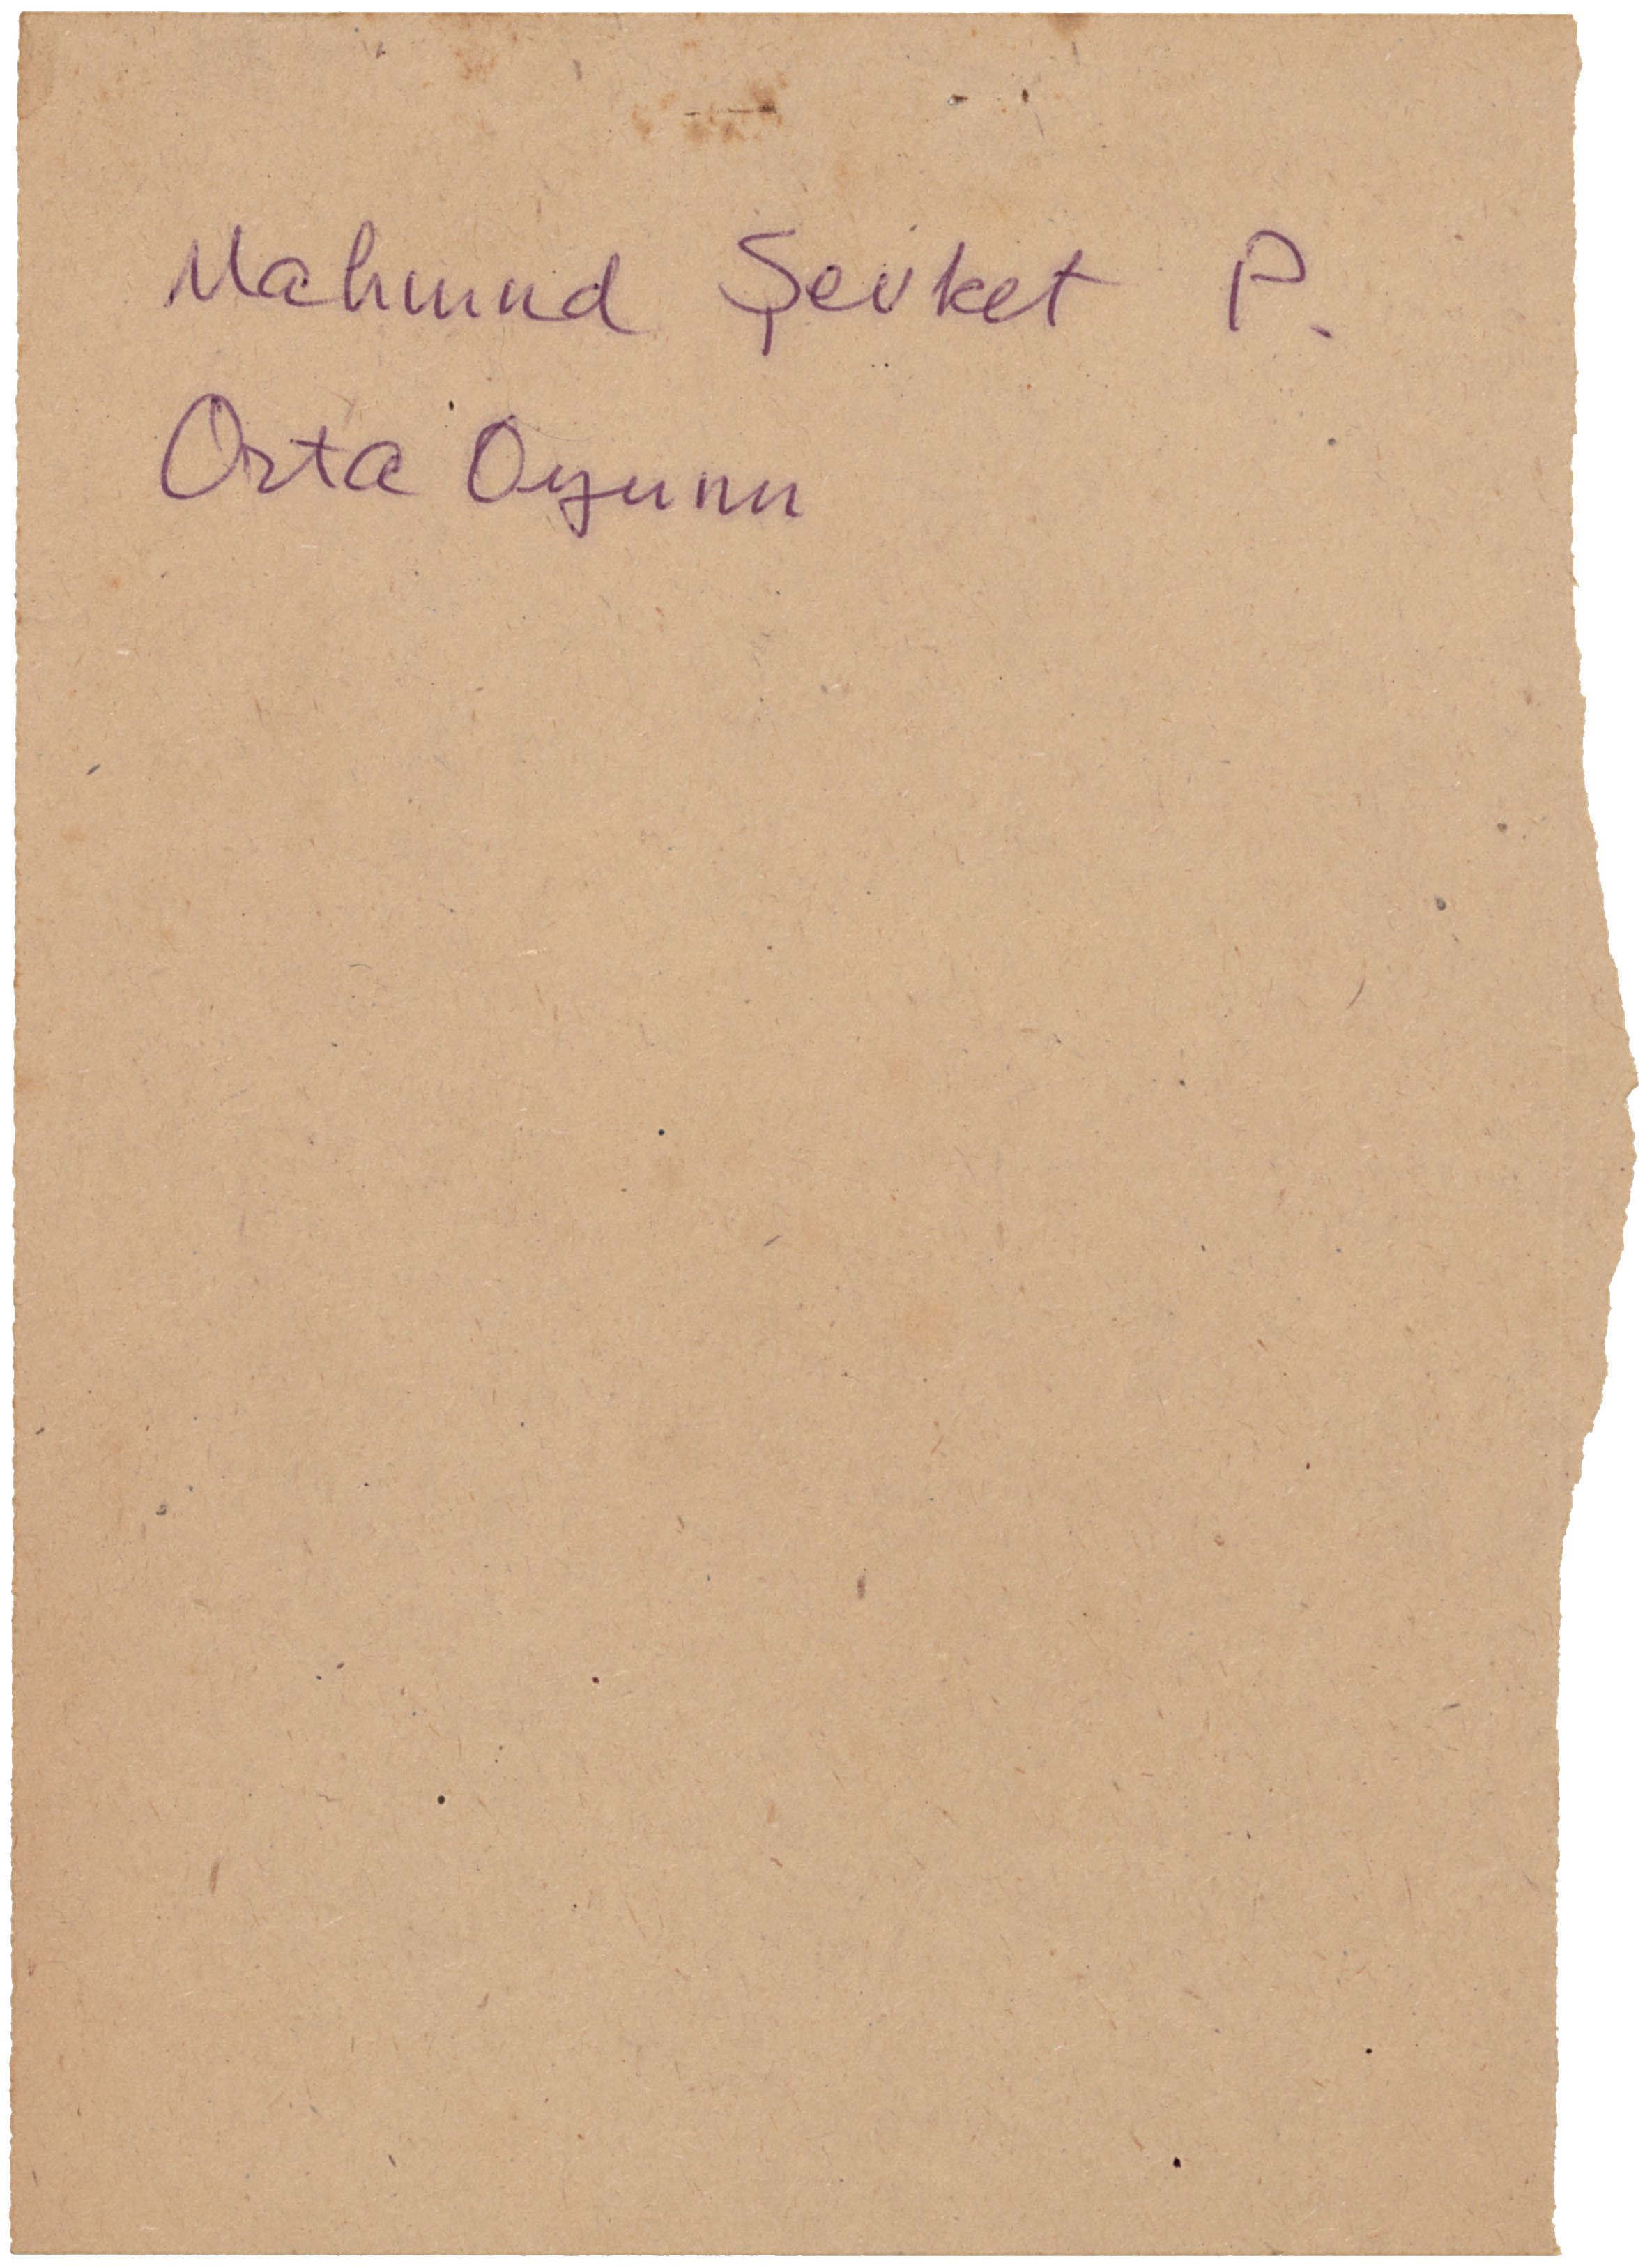 Mahmud Şevket P.
Orta Oyunu